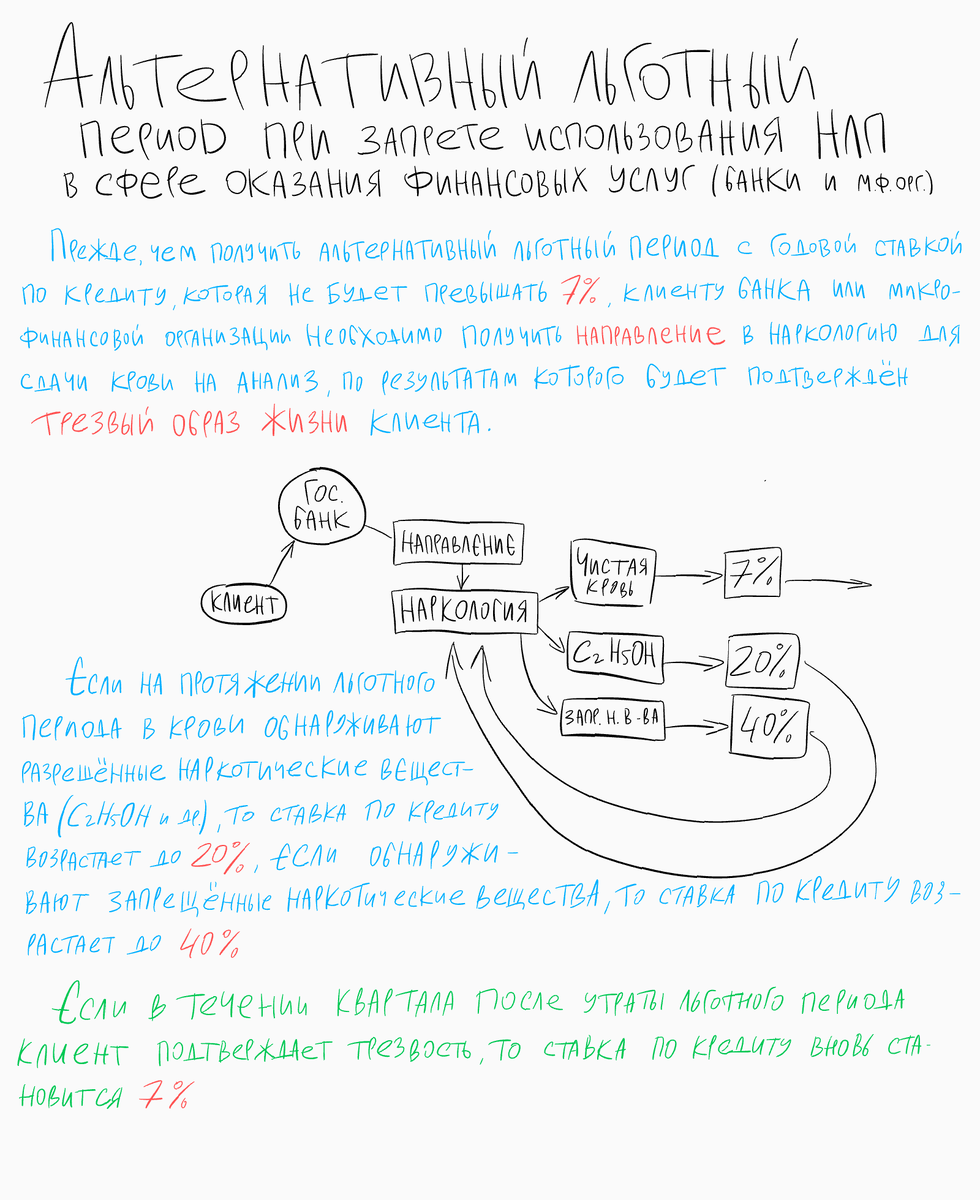 Альтернативный льготный
период при запрете использования НЛП
в сфере оказания финансовых услуг (банки и мф.орг.)
Прежде, чем получить альтернативный льготный период с годовой ставкой
по кредиту, которая не будет превышать 7%, клиенту банка или микро-
финансовой организации необходимо получить направление в наркологию для
сдачи крови на анализ, по результатам которого будет подтверждён
трезвый образ жизни клиента.
Гос.
банк
Направление
Чистая
кровь
7%
Клиент
Наркология
C2H5OH
20%
Запр. н. в-ва
40%
Если на протяжении льготного
периода в крови обнаруживают
разрешённые наркотические вещест-
ва (C2H5OH и др.), то ставка по кредиту
возрастает до 20%, если обнаружи-
вают запрещённые наркотические вещества, то ставка по кредиту воз-
растает до 40%
Если в течении квартала после утраты льготного периода
клиент подтверждает трезвость, то ставка по кредиту вновь ста-
новится 7%